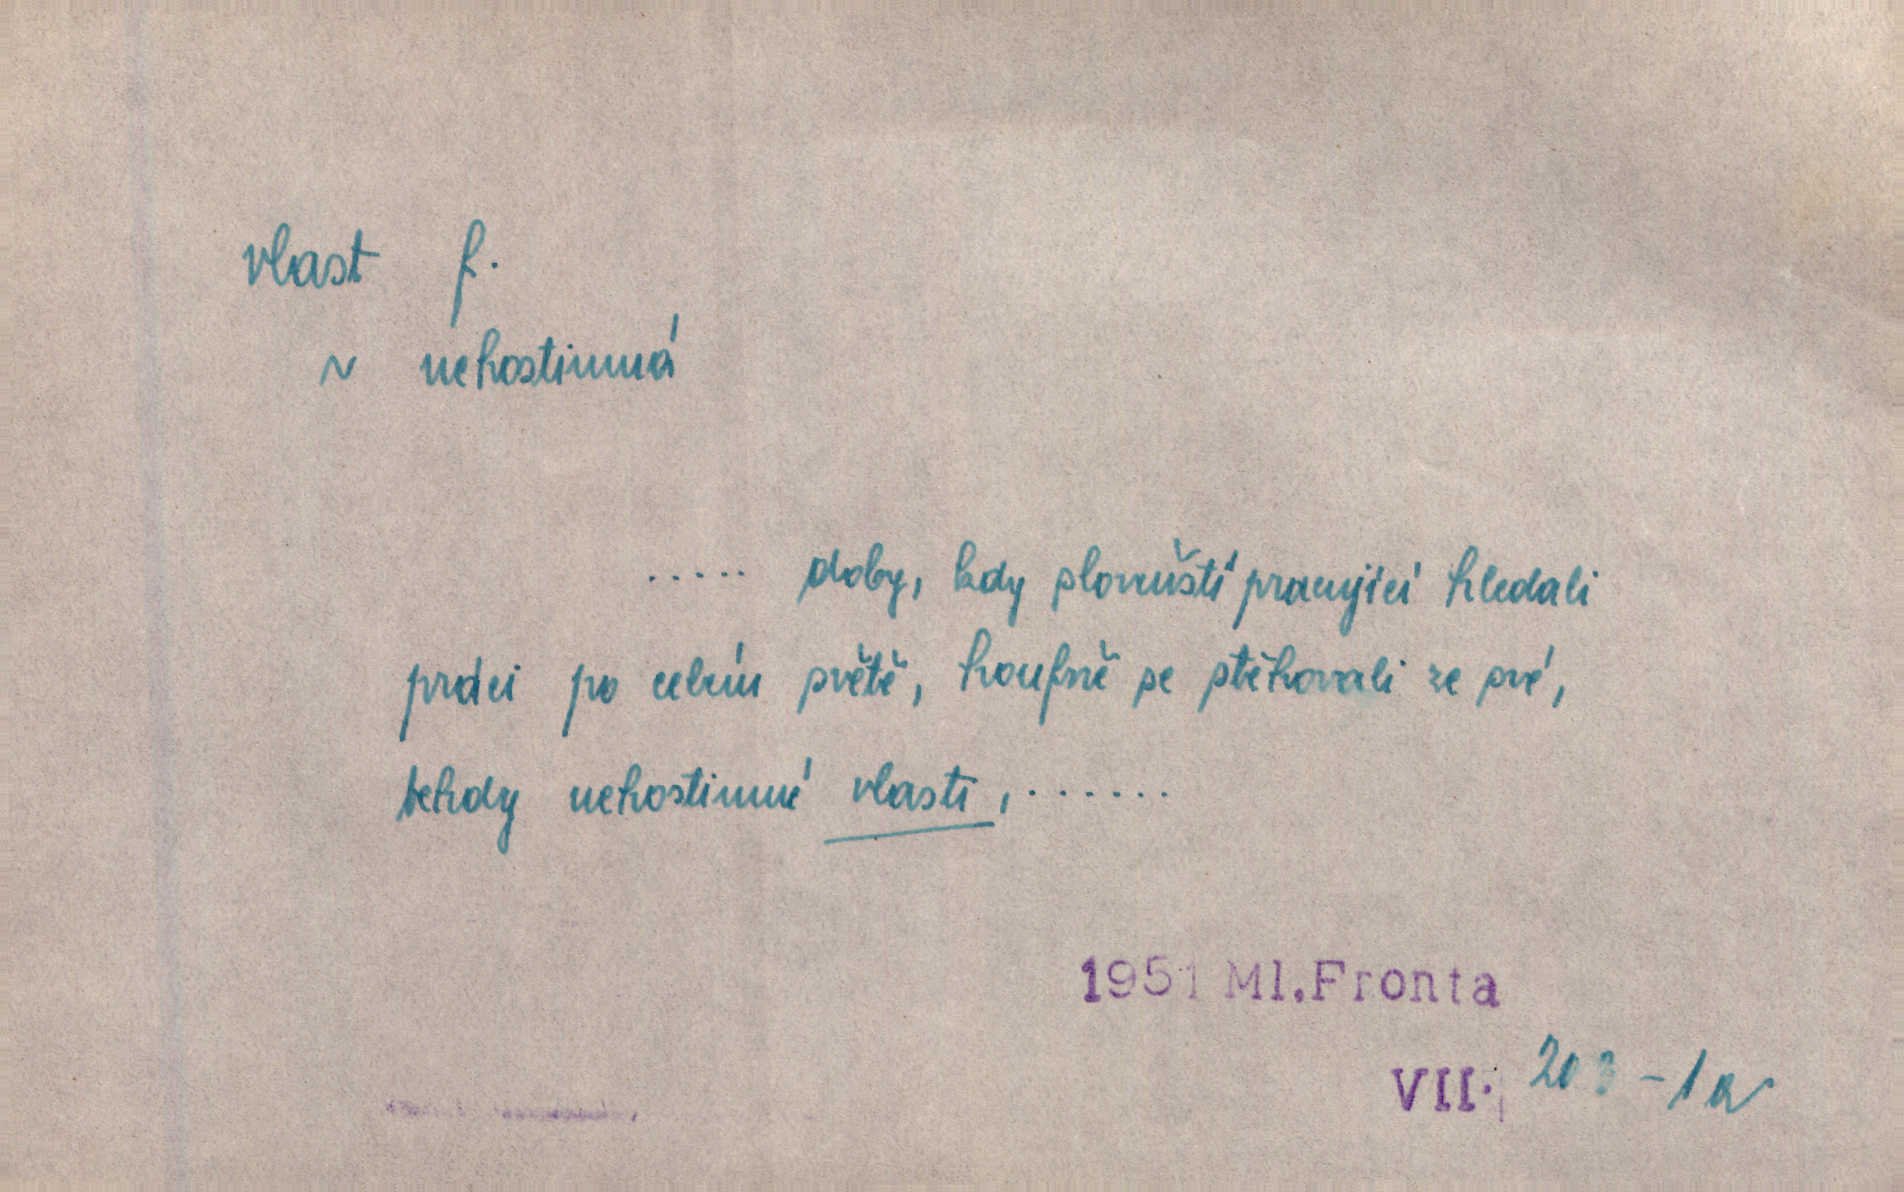 vlast f.
~ nehostinná
..... doby, kdy slovenští pracující hledali
práci po celém světě, houfně se stěhovali ze své,
tehdy nehostinné vlasti, .......
1951 Ml.Fronta
VII. -1a